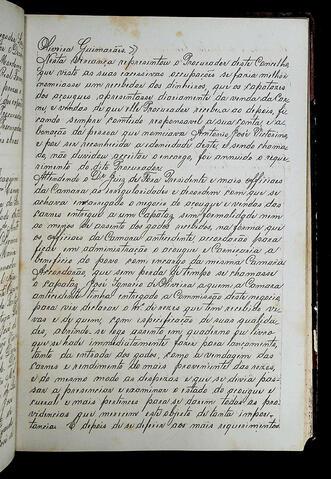 Oliveira Guimarães.
Nesta vereança representou o Procurador deste Concelho
que visto as suas excessivas occupações se fazia milhor
nomiasse um recebedor dos dinheiros, que os capatazes
dos açougues apresentasse diariamente da venda da Car-
ne, e vendas de que elle Procurador recebia ao depois, fi-
cando sempre comtudo responsavel a sua conta, e a
bonação da pessoa que nomiava Antonio José Victorino,
e por ser reconhecida a idoneidade deste e sendo chama-
do, não duvidou acceitar o encargo, foi annuido o reque-
rimento do dito Procurador.
Attendendo o Dr. Juiz de Fora Presidente e mais officiaes
da Camara as irregularidades e desordem com que se
achava o negocio do açougue e vendas das
carnes entregue a um Capataz, sem formalidade nem
ao menos de assento dos gados recebidos, na forma que
os officiaes da Camara antecedente accordarão para fi-
car em administração o açougue e Carniçaria a
beneficio do povo com encargo da mesma Camara:
Accordarão, que sem perda de tempo se chamasse
o capataz José Ignacio de Oliveira a quem a Camara
antecedente tinha entregado a Commissão deste negocio,
para vir declarar o n.º de rezes que tem recebido vi-
vas e de quem; com especificação de suas qualida-
des, abrindo-se logo assento em quaderno ou livro
que se hade immediatamente fazer para lançamento,
tanto da entrada dos gados, como da vendagem das
carnes e rendimento do mais proveniente das rezes,
e do mesmo modo as despezas e que se devia pas-
sar a presenciar e examinar o estado do açougue e
curral e mais pertences para se darem todas as pro-
videncias que merecem este objecto de tanta impor-
tancia. E depois de se deferir aos mais requerimentos